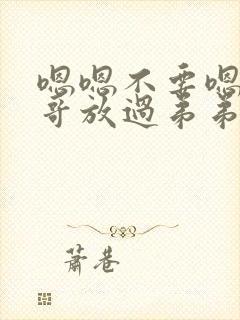 嗯嗯不要嗯
哥放過弟弟
蕭巷